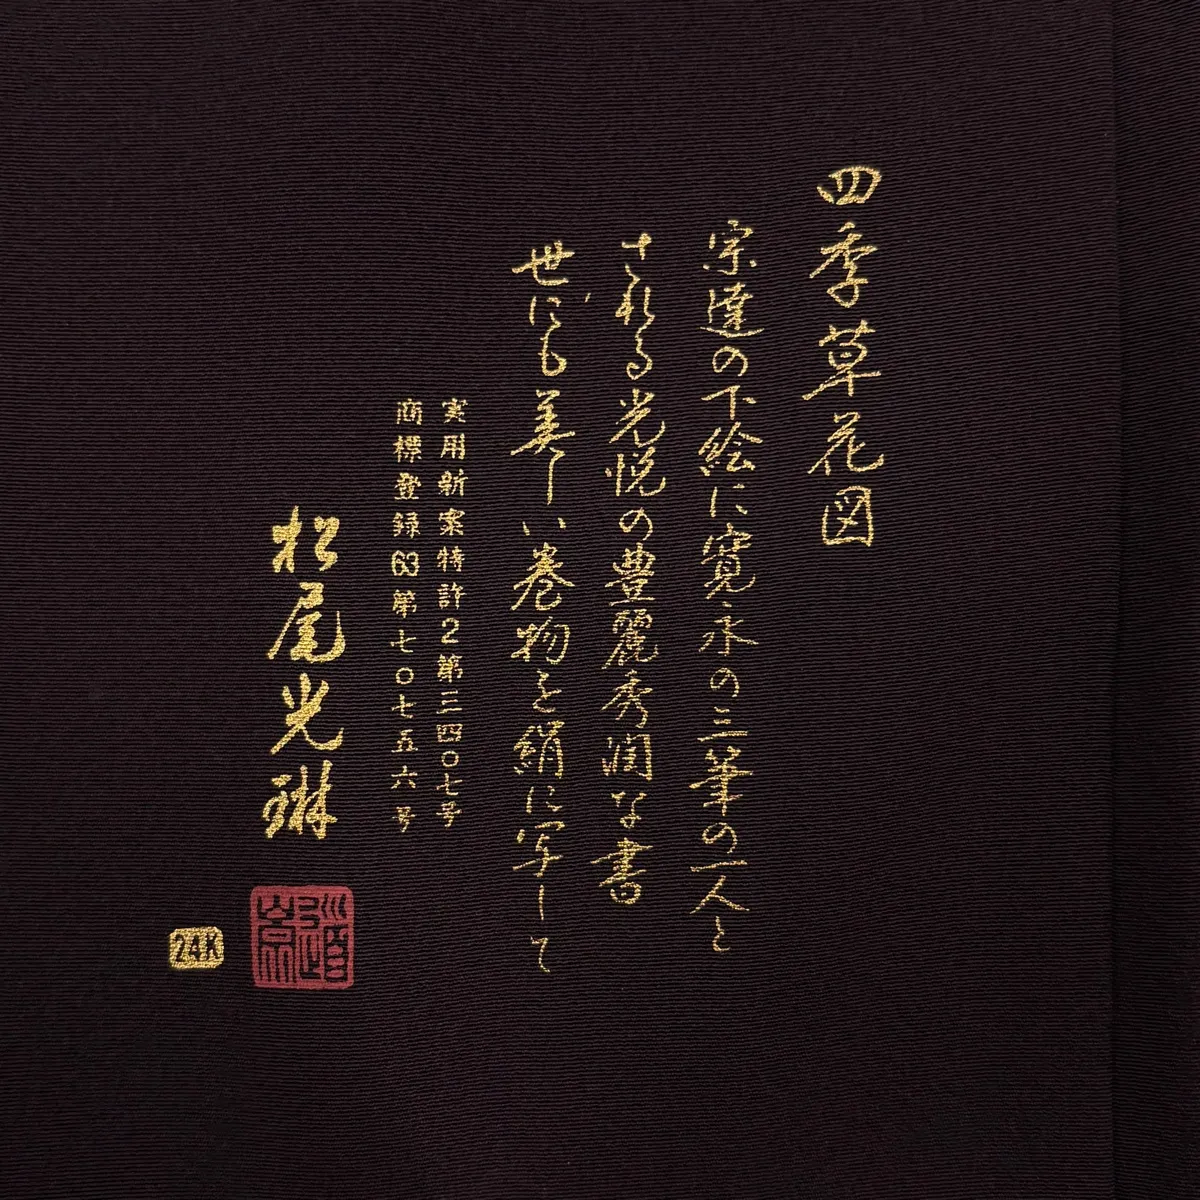 四季草花図
宗達の下絵に寛永の三筆の一人と
される光悦の豊麗秀潤な書
世にも美しい巻物を絹に写して
実用新案特許2第三四〇七号
商標登録63第七〇七五六号
松尾光琳
24K